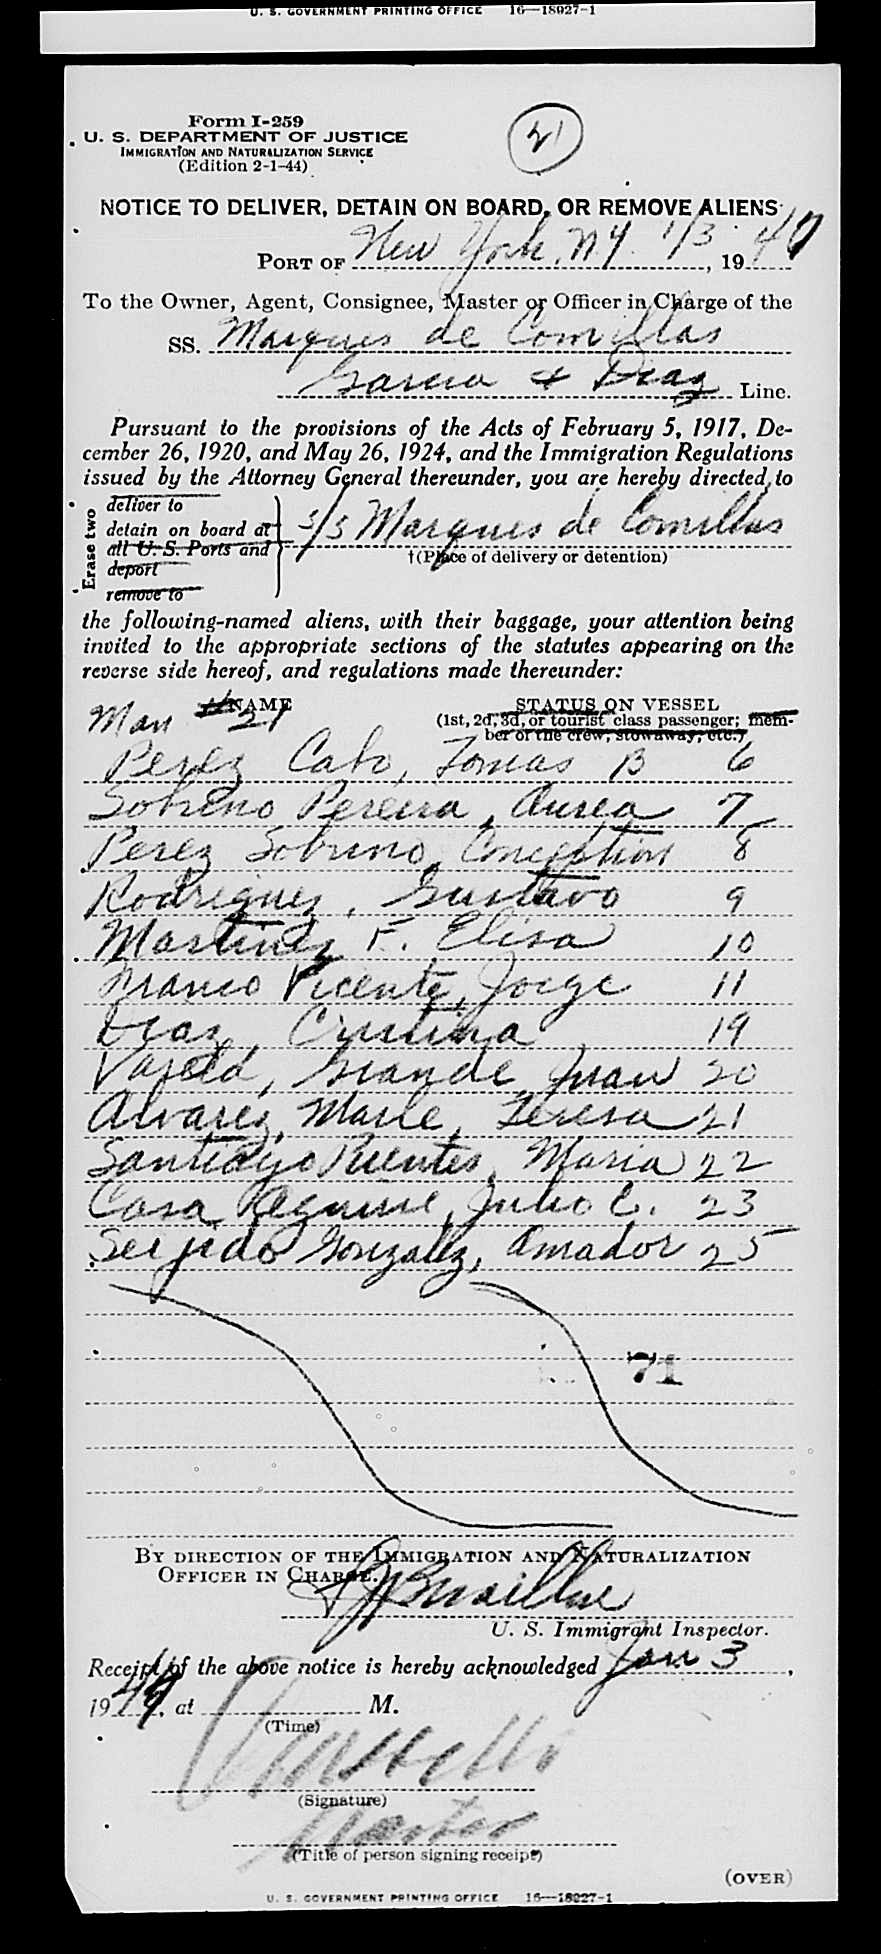 U. S. GOVERNMENT PRINTING OFFICE 16—18027-1
Form I-259
U. S. DEPARTMENT OF JUSTICE
IMMIGRATION AND NATURALIZATION SERVICE
(Edition 2-1-44)
21
NOTICE TO DELIVER, DETAIN ON BOARD, OR REMOVE ALIENS
PORT OF New York, N.Y. 1/3, 1947
To the Owner, Agent, Consignee, Master or Officer in Charge of the
SS. Marques de Comillas
Garcia & Diaz Line.
Pursuant to the provisions of the Acts of February 5, 1917, De-
cember 26, 1920, and May 26, 1924, and the Immigration Regulations
issued by the Attorney General thereunder, you are hereby directed to
Erase two
deliver to
detain on board at
all U. S. Ports and
deport
remove to
S/S Marques de Comillas
†(Place of delivery or detention)
the following-named aliens, with their baggage, your attention being
invited to the appropriate sections of the statutes appearing on the
reverse side hereof, and regulations made thereunder:
NAME STATUS ON VESSEL
(1st, 2d, 3d, or tourist class passenger; mem-
ber of the crew, stowaway, etc.)
Man # 21
Perez Cabo, Tomas B 6
Sobrino Pereira, Aurea 7
Perez Sobrino, Conception 8
Rodriguez, Gustavo 9
Martinez F. Elisa 10
Franco Vicente, Jorge 11
Diaz, Cristina 19
Varela, Grande, Juan 20
Alvarez, Marle, Teresa 21
Santiago Puentes, Maria 22
Casa Reguire, Julio C. 23
Seijido Gonzalez, Amador 25
71
BY DIRECTION OF THE IMMIGRATION AND NATURALIZATION
OFFICER IN CHARGE.
U. S. Immigrant Inspector.
Receipt of the above notice is hereby acknowledged Jan 3,
1947, at M.
(Time)
(Signature)
Master
(Title of person signing receipt)
(OVER)
U. S. GOVERNMENT PRINTING OFFICE 16—18027-1